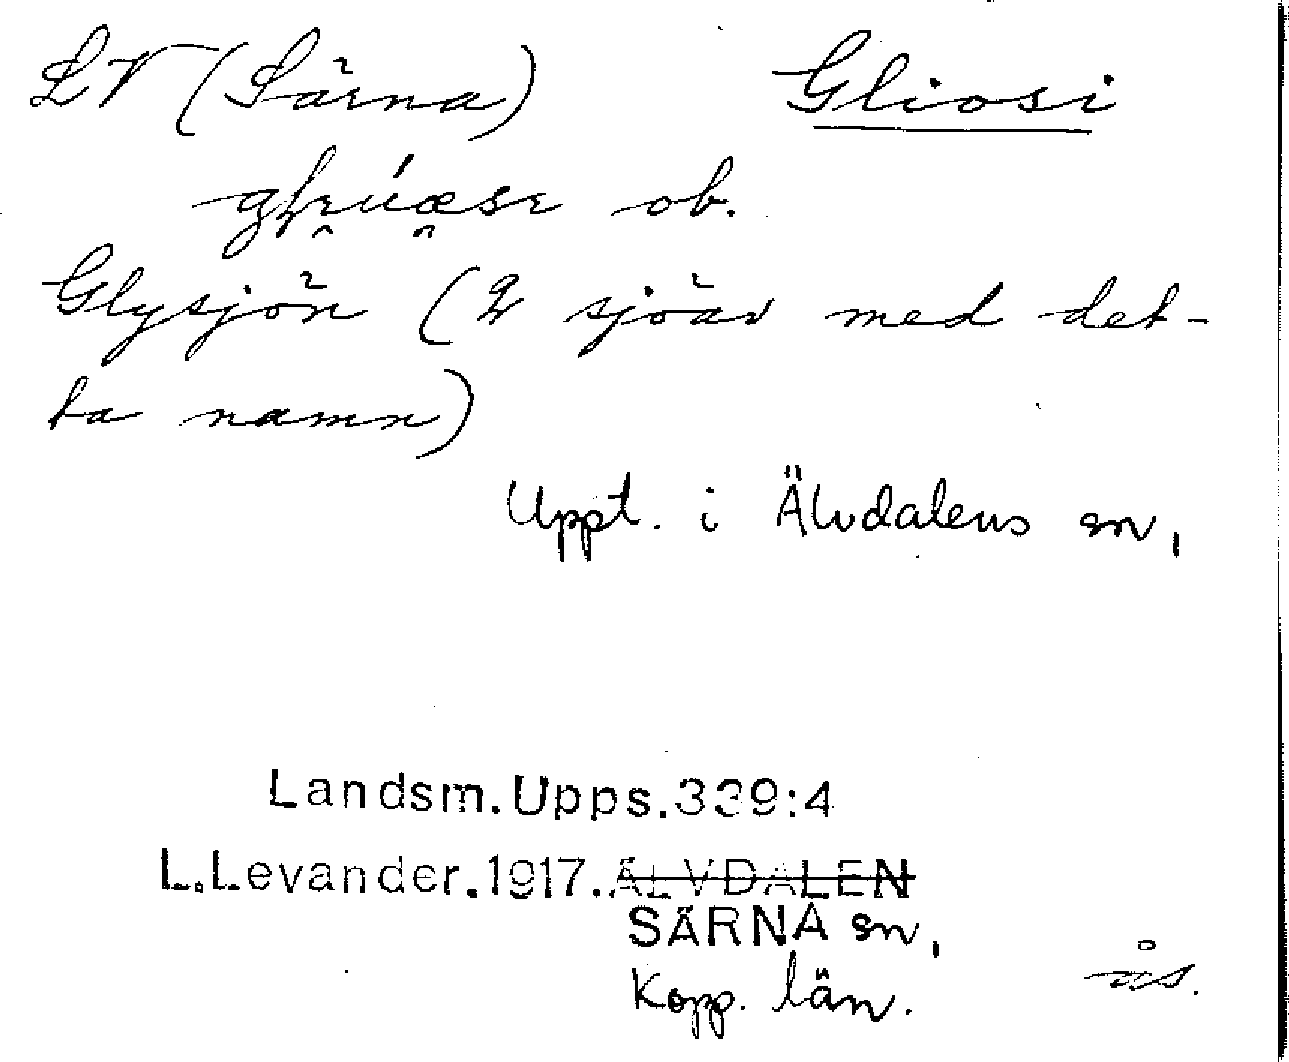 LV (Särna) Gliosi
ob.
Glysjön (2 sjöar med det-
ta namn)
Uppt. i Älvdalens sn,
Landsm.Upps.339:4
L.Levander.1917.ÄLVDALEN
SÄRNA sn,
Kopp. län.
ås.